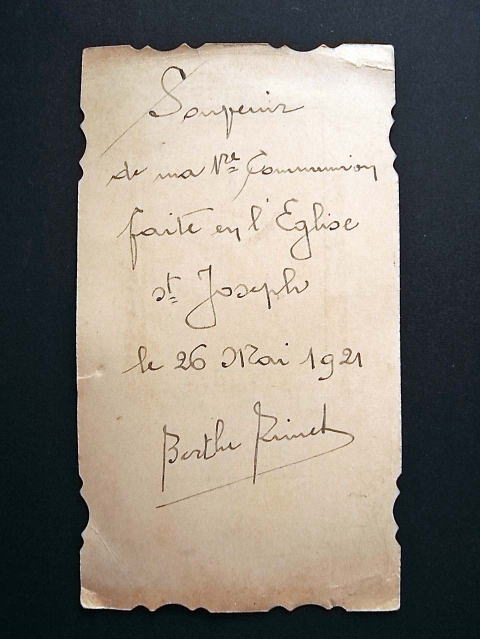 Souvenir
de ma 1re Communion
faite en l'Eglise
st Joseph
le 26 Mai 1921
Berthe